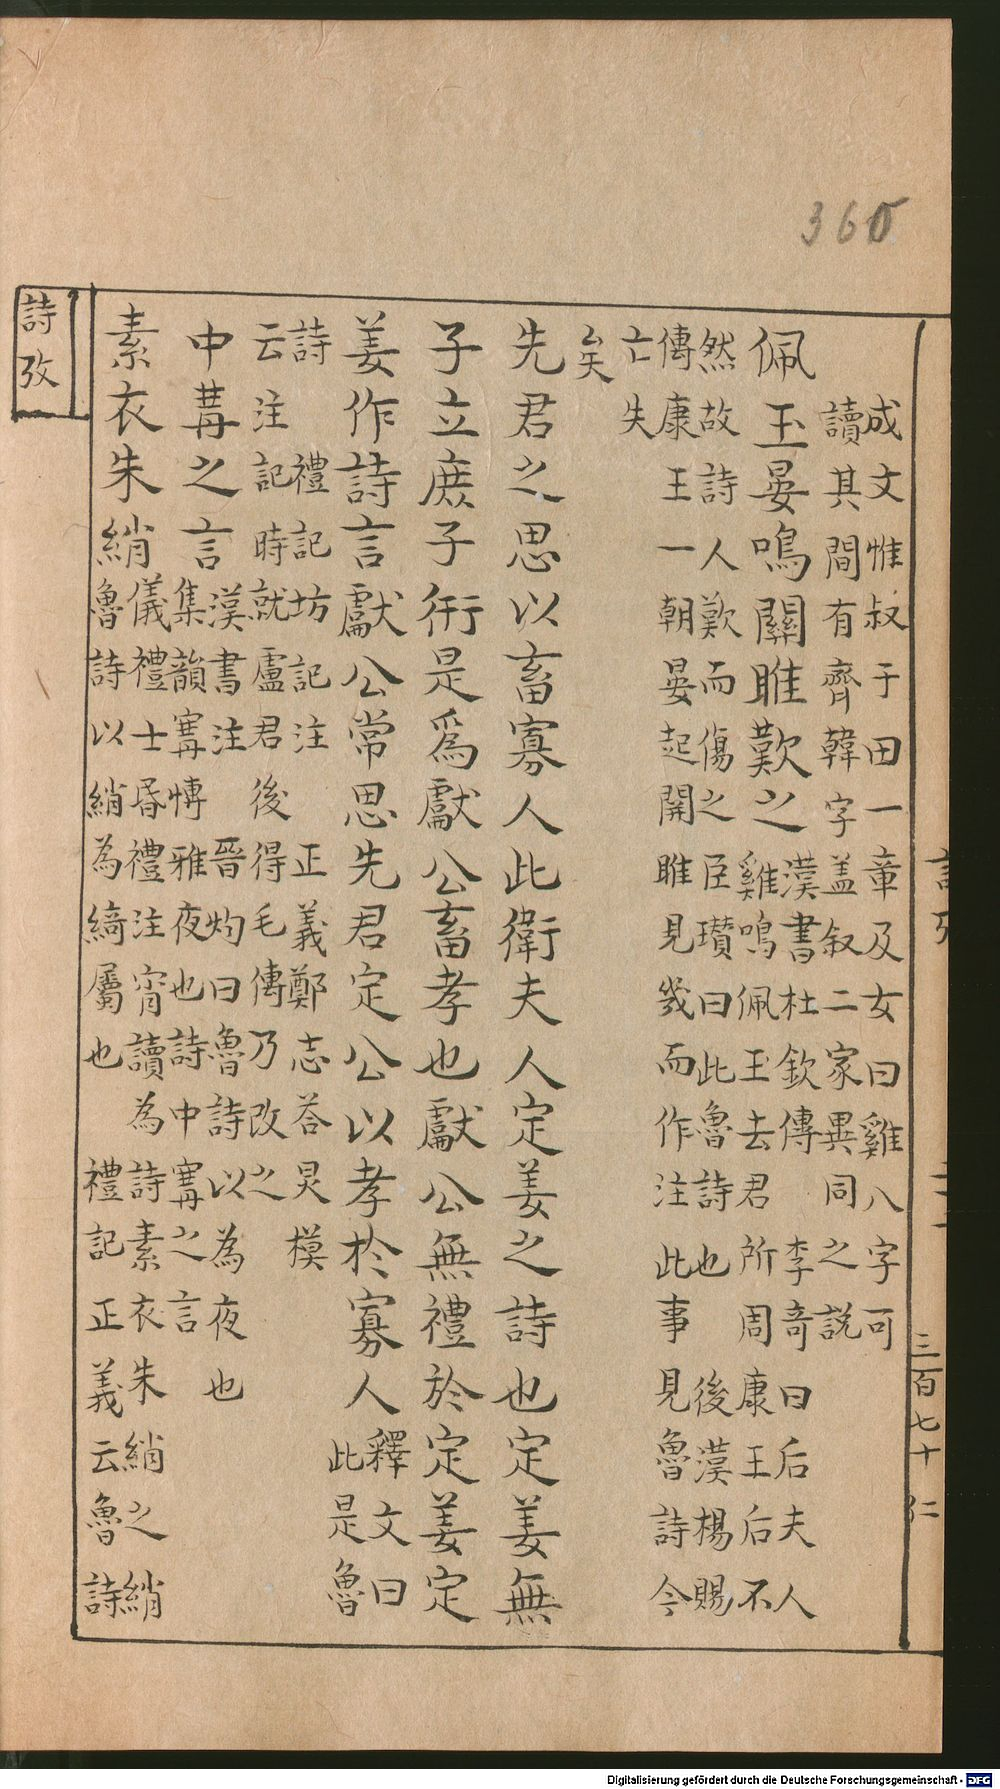 360
詩攷
三百七十 仁
成文惟叔于田一章及女曰雞八字可
讀其間有齊韓字盖叙二家異同之說
佩玉晏鳴關雎歎之
漢書杜欽傳李奇曰后夫人
雞鳴佩玉去君所周康王后不
然故詩人歎而傷之臣瓚曰此魯詩也後漢楊賜
傳康王一朝晏起開雎見幾而作注此事見魯詩今
亡失
矣
先君之思以畜寡人此衛夫人定姜之詩也定姜無
子立庶子衎是爲獻公畜孝也獻公無禮於定姜定
姜作詩言獻公常思先君定公以孝於寡人
釋文曰
此是魯
詩 禮記坊記注 正義鄭志荅炅模
云注記時就盧君後得毛傳乃改之
中冓之言
漢書注晉灼曰魯詩以為夜也
集韻愽雅夜也詩中之言
素衣朱綃
儀禮士昏禮注宵讀為詩素衣朱綃之綃
魯詩以綃為綺屬也 禮記正義云魯詩
詩攷
Digitalisierung gefördert durch die Deutsche Forschungsgemeinschaft - DFG